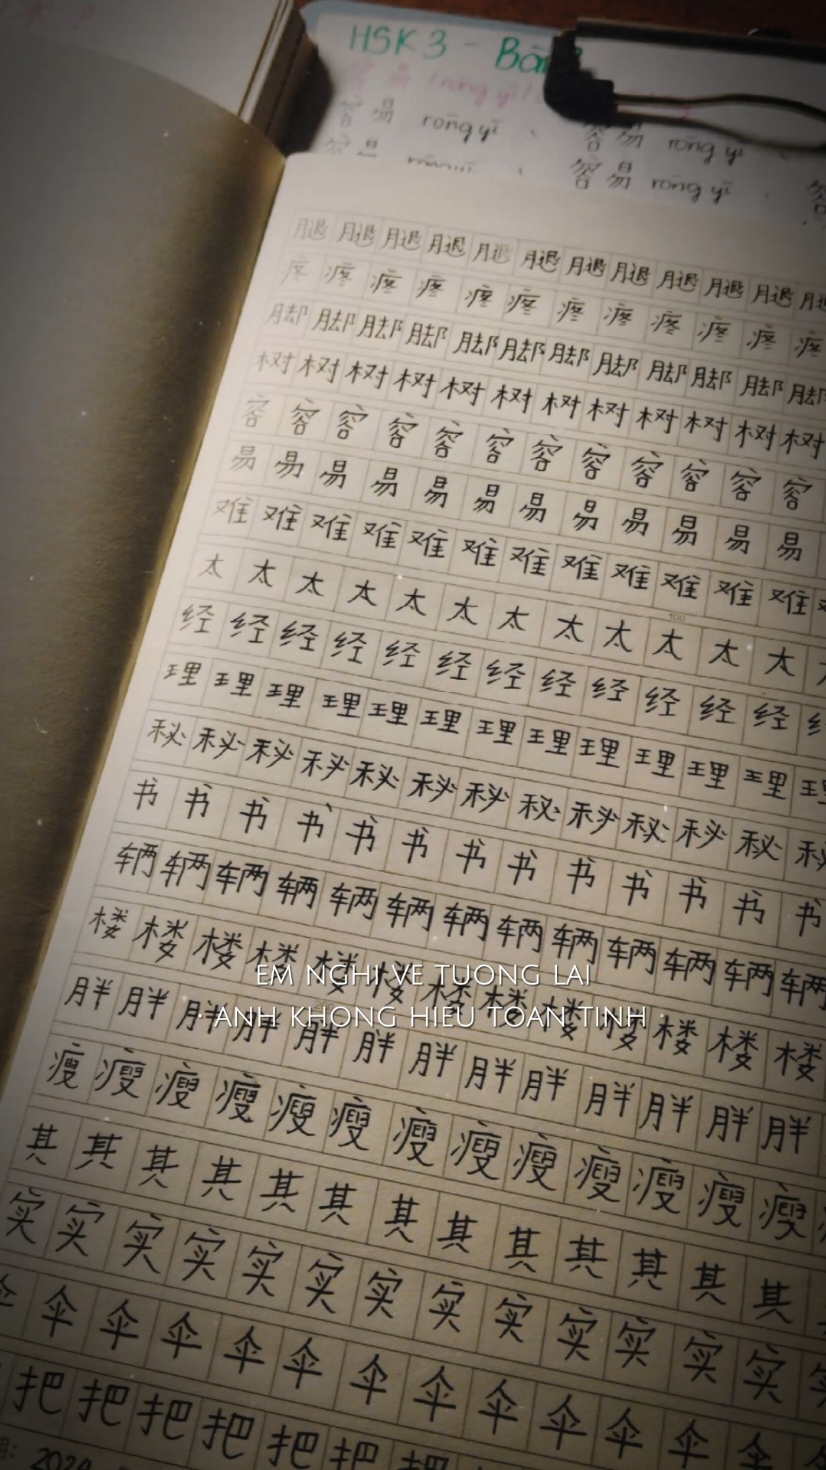 HSK 3 -
容易 rōng yì 、 容易 rōng yì
容易 rōng yì .
腿腿腿腿腿腿腿腿腿腿腿腿
疼疼疼疼疼疼疼疼疼疼疼疼
脚脚脚脚脚脚脚脚脚脚脚脚
树树树树树树树树树树树树
容容容容容容容容容容容容
易易易易易易易易易易易易
难难难难难难难难难难难难
太太太太太太太太太太太太
经经经经经经经经经经经经
理理理理理理理理理理理理
秘秘秘秘秘秘秘秘秘秘秘秘秘
书书书书书书书书书书书书书
辆辆辆辆辆辆辆辆辆辆辆辆辆
楼楼楼楼楼楼楼楼楼楼楼楼楼
EM NGHI VE TUONG LAI
ANH KHONG HIEU TOAN TINH
胖胖胖胖胖胖胖胖胖胖胖胖胖
瘦瘦瘦瘦瘦瘦瘦瘦瘦瘦瘦瘦瘦
其其其其其其其其其其其其其
实实实实实实实实实实实实实
伞伞伞伞伞伞伞伞伞伞伞伞伞
把把把把把把